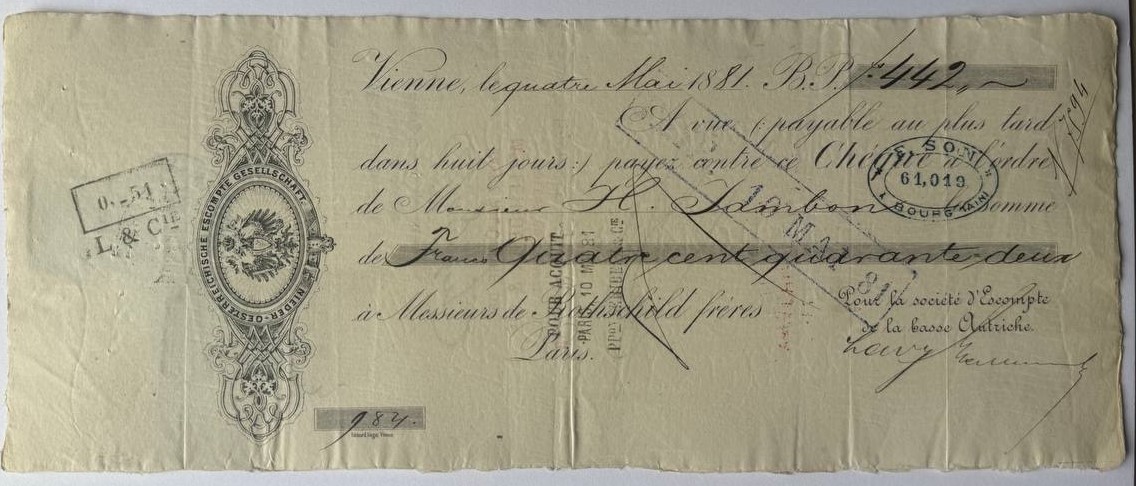 Vienne, le quatre Mai 1881. B. P. f. 442,,
A vue (payable au plus tard
dans huit jours:) payez contre ce Chéque à l'ordre
de Monsieur H. Sambon la somme
de Francs Quatre cent quarante-deux
à Messieurs de Rothschild frères
Paris.
Pour la société d'Escompte
de la basse Autriche.
984.
NIEDER-OESTERREICHISCHE ESCOMPTE GESELLSCHAFT.
L & Cie
61,019
POUR ACQUIT
MAI 81